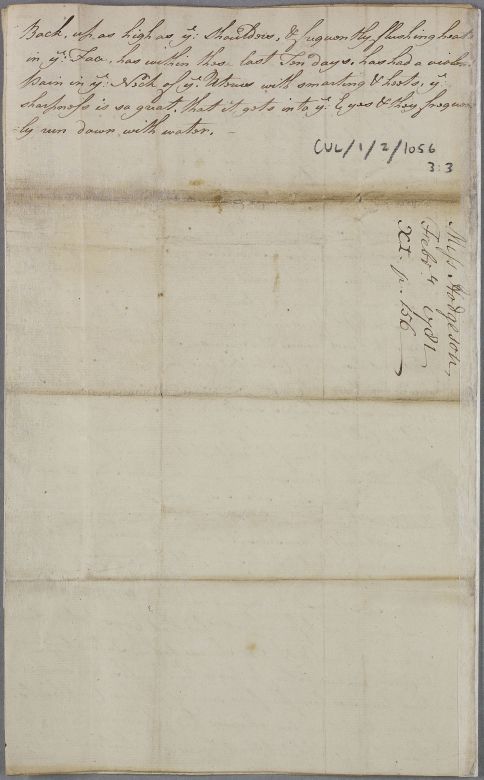 Back, up as high as ye: Shoulders, & frequently flushing heats
in ye: Face, has within thes last Ten days, has had a violen
Pain in ye: Neck of ye: Uterus with smarting & heets, ye:
sharpness is so great, that it gets into ye: Eyes & they frequen
-ly run down with water. -
CUL/1/2/1056
3:3
Miss Hodgeson,
Febr 4 1781
XI. p. 156